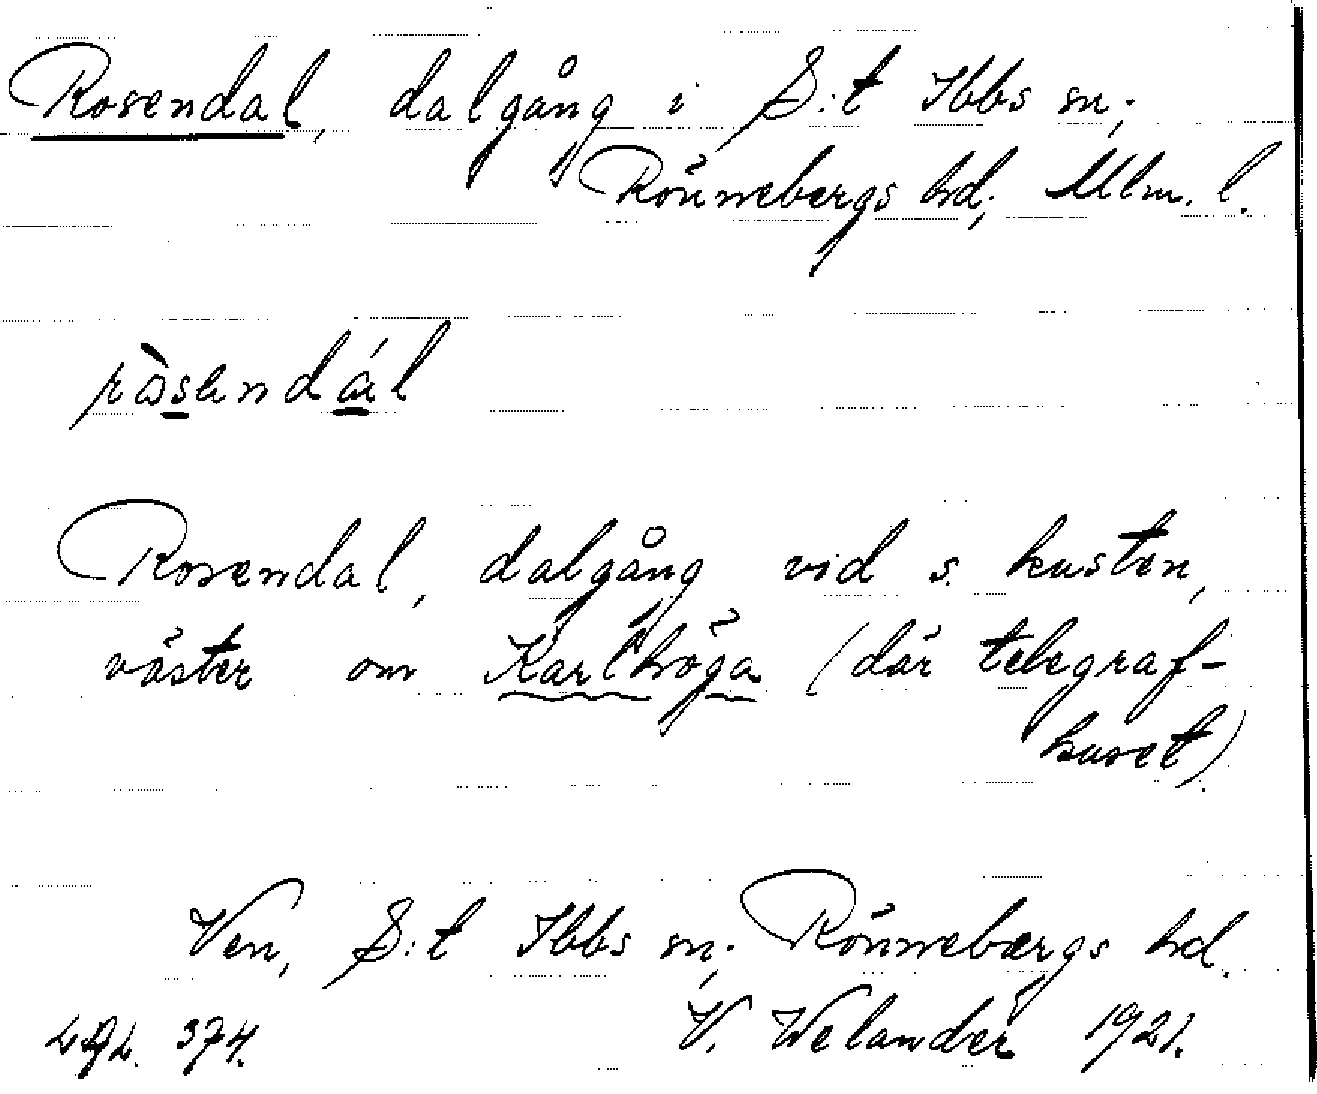 Rosendal, dalgång i S:t Ibbs sn;
Rönnebergs hd; Mlm. l.
ròsendál
Rosendal, dalgång vid s. kusten,
väster om Karlhöga (där telegraf-
huset)
Ven, S:t Ibbs sn; Rönnebergs hd.
374. V. Welander 1921.